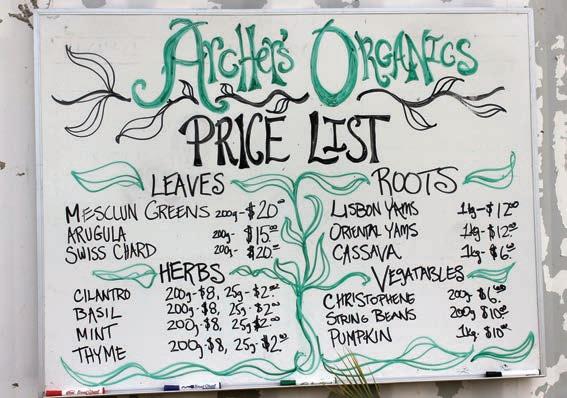 ARCHER'S ORGANICS
PRICE LIST
LEAVES
MESCLUN GREENS 200g - $20.00
ARUGULA 200g - $15.00
SWISS CHARD 200g - $20.00
HERBS
CILANTRO 200g - $8, 25g - $2.00
BASIL 200g - $8, 25g - $2.00
MINT 200g - $8, 25g $2.00
THYME 200g - $8, 25g - $2.00
ROOTS
LISBON YAMS 1kg - $12.00
ORIENTAL YAMS 1kg - $12.00
CASSAVA 1kg - $6.00
VEGATABLES
CHRISTOPHENE 200g $6.00
STRING BEANS 200g $10.00
PUMPKIN 1kg - $10.00